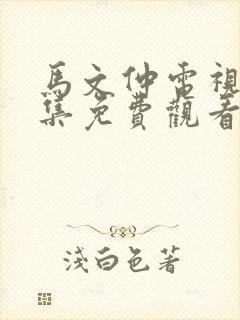 馬文仲電視
集免費觀看
淺白色著